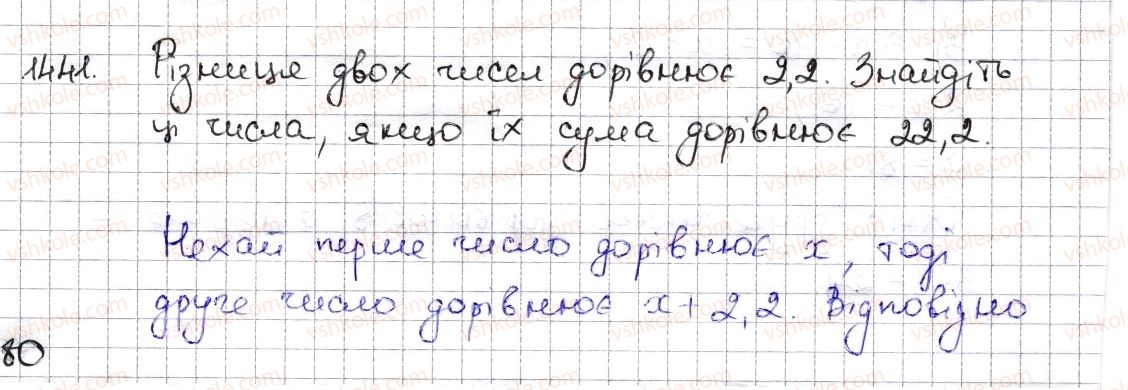 1441. Різниця двох чисел дорівнює 2,2. Знайдіть
ці числа, якщо їх сума дорівнює 22,2.
Нехай перше число дорівнює x, тоді
друге число дорівнює x + 2,2. Відповідно
80